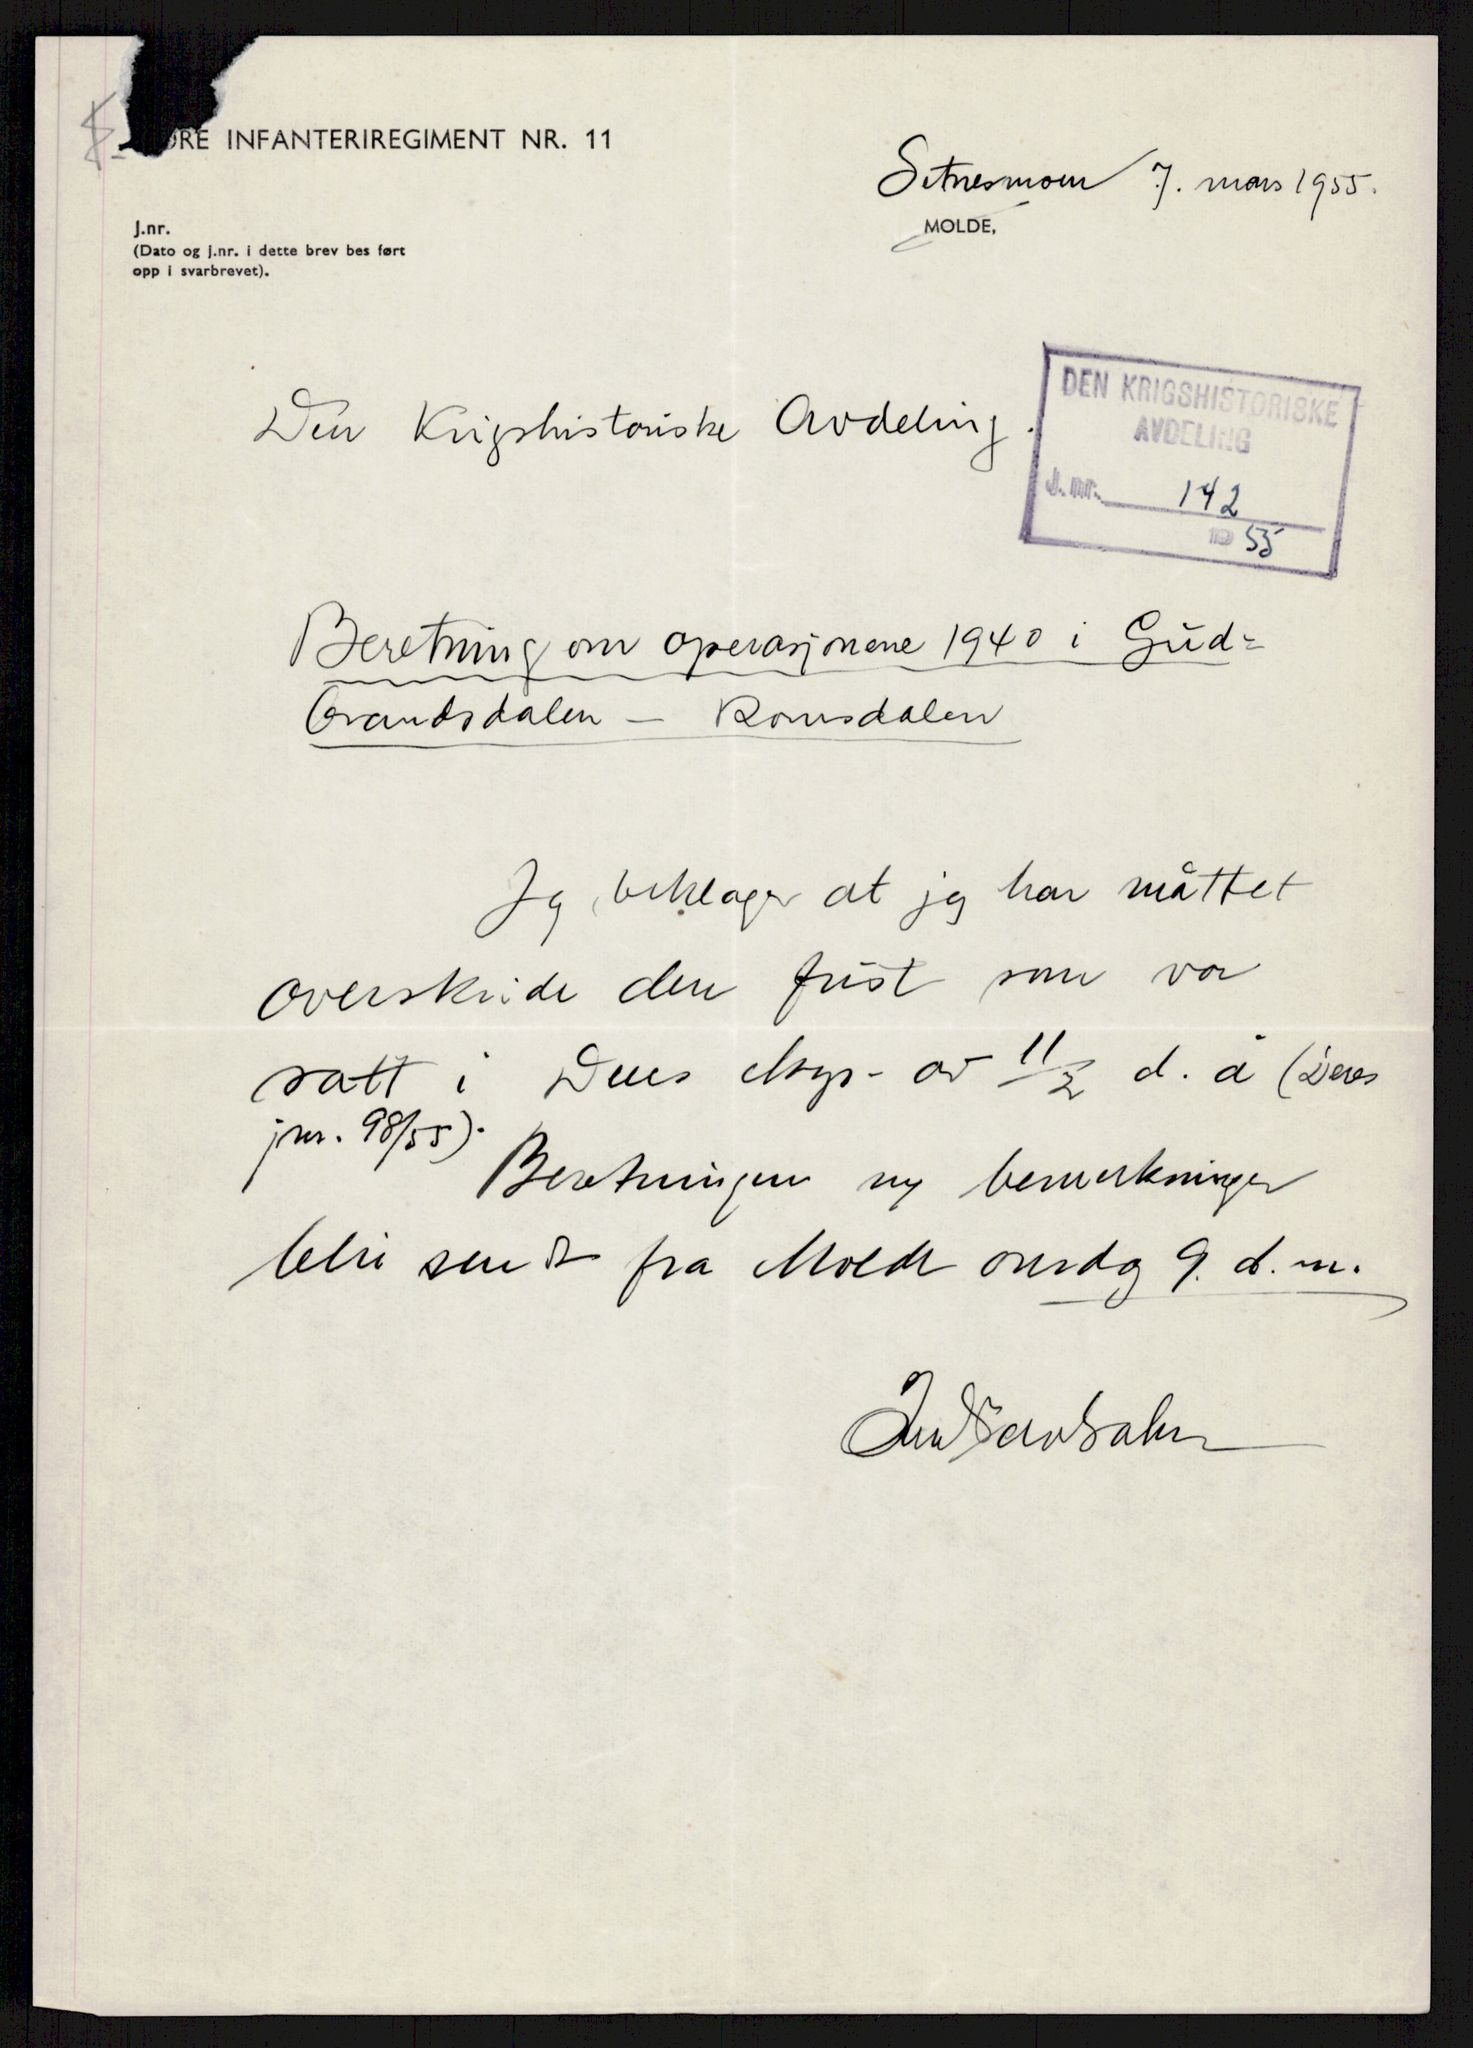 ØRE INFANTERIREGIMENT NR. 11
Setnesmoen 7. mars 1955.
MOLDE,
J.nr.
(Dato og j.nr. i dette brev bes ført
opp i svarbrevet).
DEN KRIGSHISTORISKE
AVDELING
J.nr. 142
19 55
Den Krigshistoriske Avdeling.
Beretning om operasjonene 1940 i Gud=
brandsdalen – Romsdalen
Jeg beklager at jeg har måttet
overskride den frist som var
satt i Deres eksp. av 11/2 d. å (Deres
jnr. 98/55).
Beretningen og bemerkninger
bli sendt fra Molde onsdag 9. d.m.